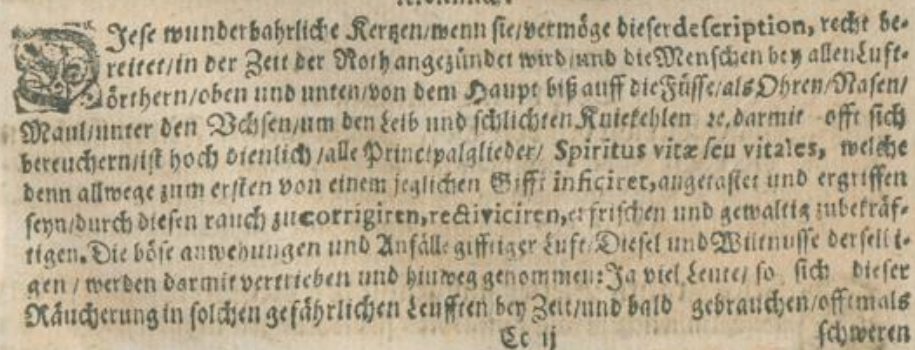 DJese wunderbahrliche Kertzen/wenn sie/vermöge dieser description, recht be-
reitet/in der Zeit der Noth angezündet wird/und die Menschen bey allen Luft-
örthern/oben und unten/von dem Haupt biß auff die Füsse/als Ohren/Nasen/
Maul/unter den Vchsen/um den Leib und schlichten Kniekehlen ꝛc. darmit offt sich
bereuchern/ist hoch dienlich/alle Principalglieder/ Spiritus vitæ seu vitales, welche
denn allwege zum ersten von einem jeglichen Gifft inficiret, angetastet und ergriffen
seyn/durch diesen rauch zu corrigiren, rectiviciren, erfrischen und gewaltig zubekräf-
tigen. Die böse anwehungen und Anfälle gifftiger Luft/Diesel und Wiltnusse derseli-
gen/werden darmit vertrieben und hinweg genommen: Ja viel Leute/ so sich dieser
Räucherung in solchen gefährlichen Leufften bey Zeit/und bald gebrauchen/offtmals
Cc ij schweren